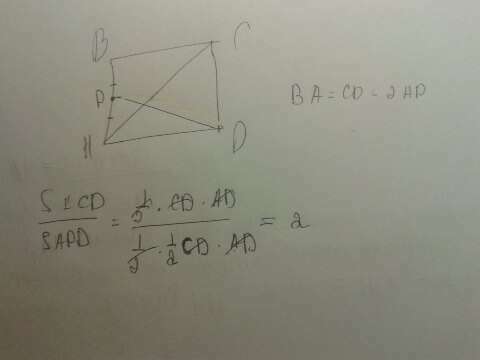 B C
P
BA = CD = 2AD
A D
S ACD / S APD = 1/2 · CD · AD / 1/2 · 1/2 CD · AD = 2